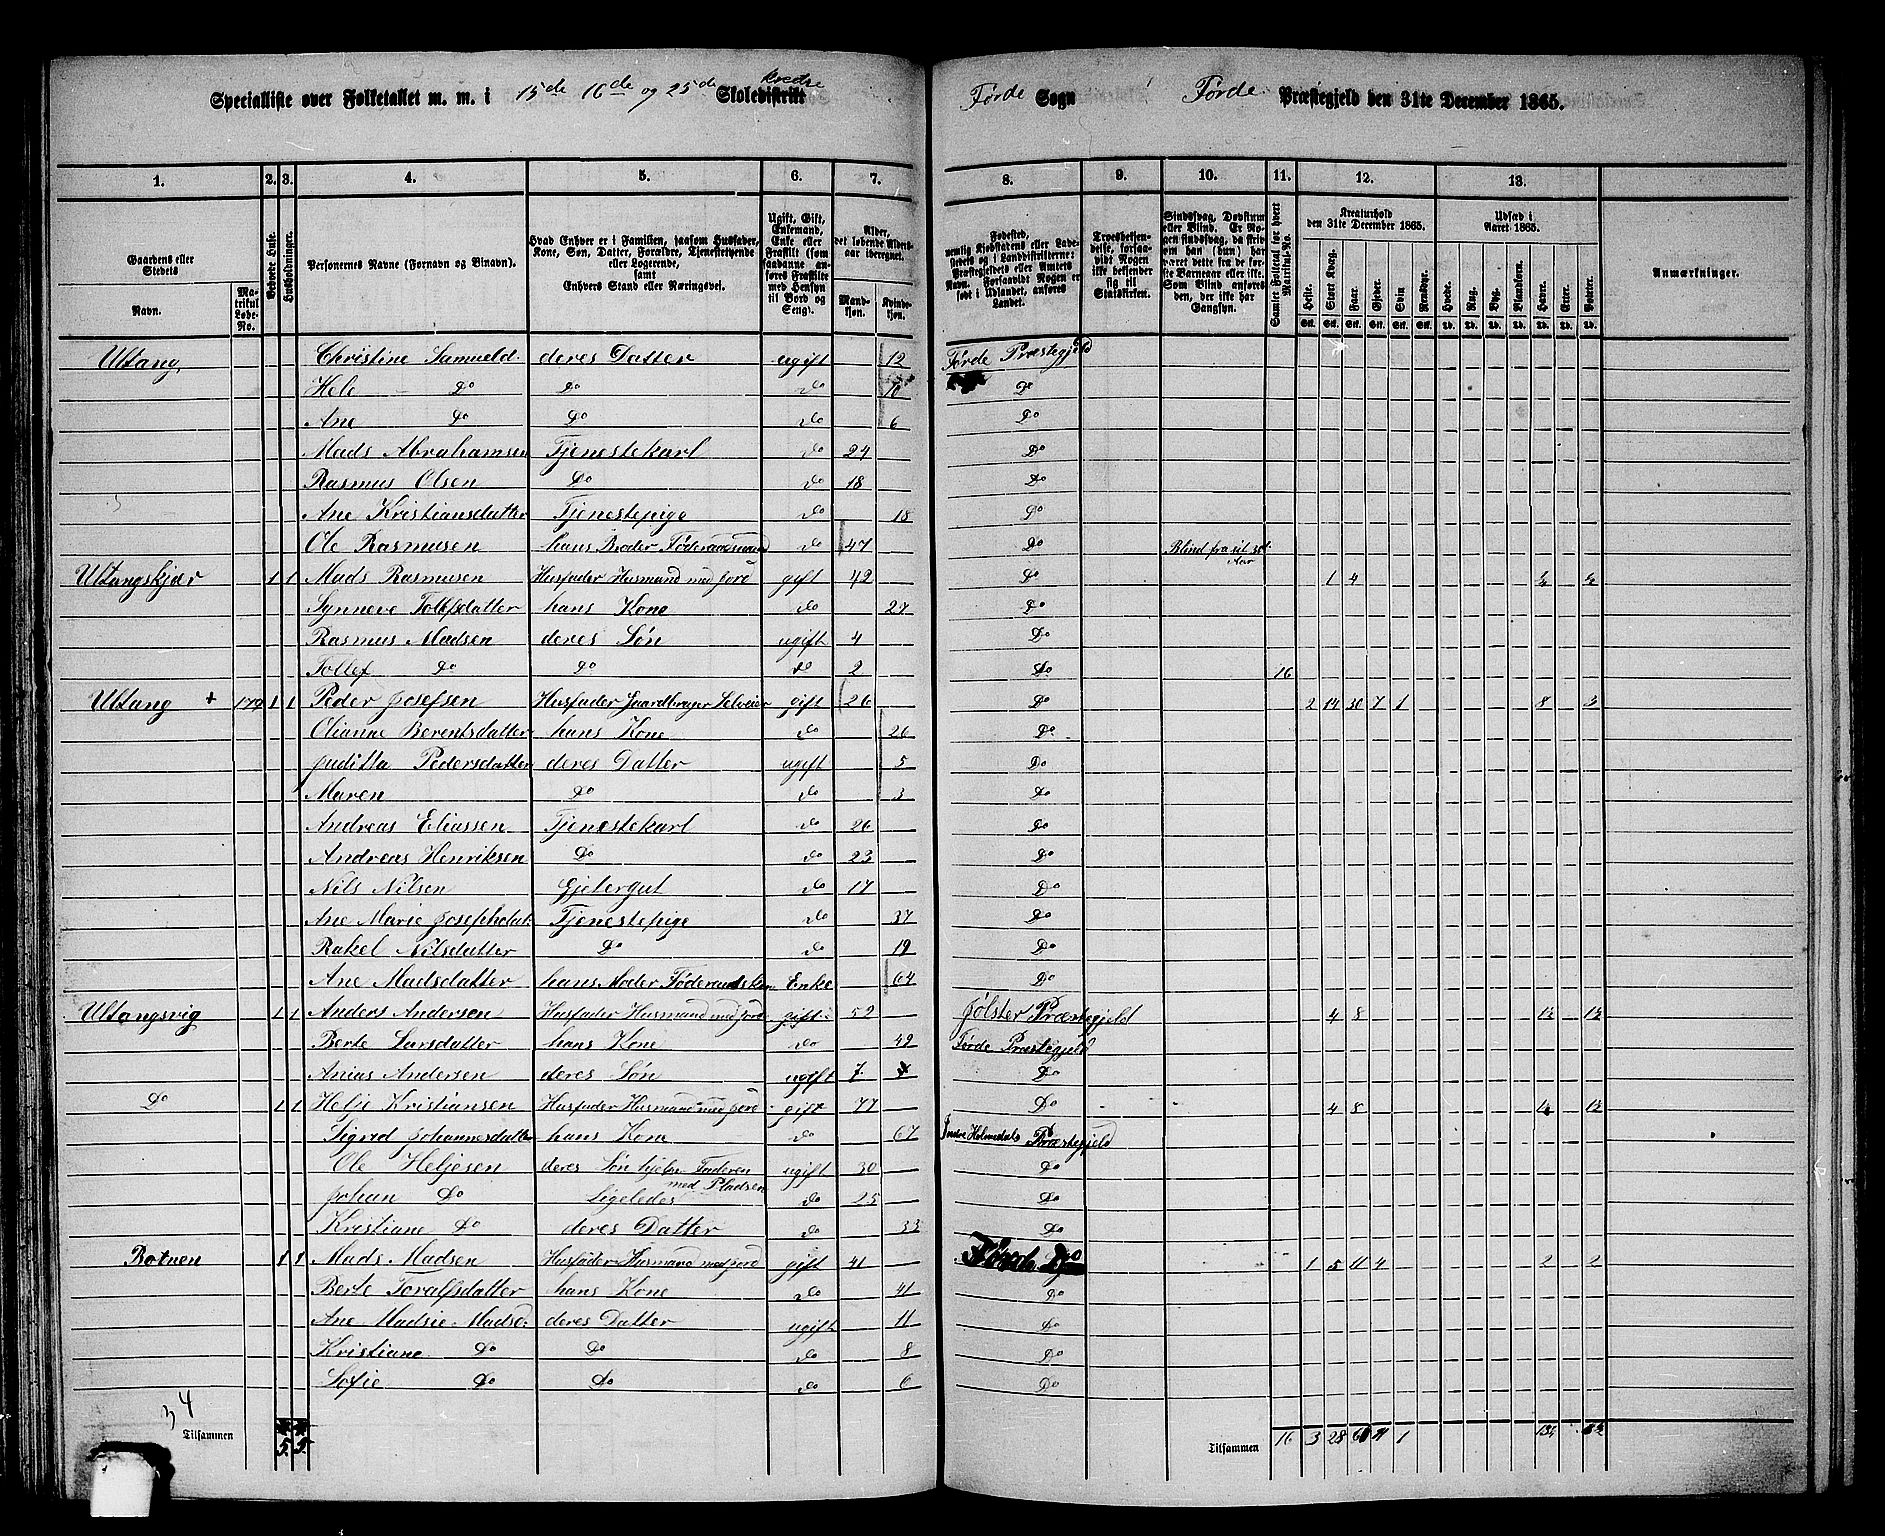 Specialliste over Folketallet m. m. i 15de 16de og 25de Skoledistrikt kredse
Førde Sogn Førde Præstegjeld den 31te December 1865.
1. 2. 3. 4. 5. 6. 7. 8. 9. 10. 11. 12. 13.
Gaardens eller Stedets
Navn.
Matrikul Løbe-No.
Beboede Huse.
Husholdninger.
Personernes Navne (Fornavn og Binavn).
Hvad Enhver er i Familien, saasom Husfader, Kone, Søn, Datter, Forældre, Tjenestetyende eller Logerende, samt Enhvers Stand eller Næringsvei.
Ugift, Gift, Enkemand, Enke eller Fraskilt (som saadanne anføres Fraskilte med Hensyn til Bord og Seng).
Alder, det løbende Alders-aar iberegnet.
Mandkjøn. Kvindekjøn.
Fødested, nemlig Kjøbstadens eller Ladestedets og i Landdistrikterne: Præstegjeldets eller Amtets Navn. Forsaavidt Nogen er født i Udlandet, anføres Landet.
Troesbekjendelse, forsaavidt Nogen ikke bekjender sig til Statskirken.
Sindssvag, Døvstum eller Blind. Er Nogen sindssvag, da skrives han (hun) har været dette fra de første Barneaar eller ikke. Som Blind anføres den, der ikke har Gangsyn.
Samlet Folketal for hvert Matrikul-No.
Kreaturhold den 31te December 1865.
Heste. Stort Kvæg. Faar. Gjeder. Svin. Rensdyr.
Udsæd i Aaret 1865.
Hvede. Rug. Byg. Blandkorn. Havre. Erter. Poteter.
Anmærkninger.
Ultang. Christine Samueld. deres Datter ugift 12 Førde Præstegjeld
Hele Do Do do 10 Do
Ane Do Do do 6 Do
Mads Abrahamsen Tjenestekarl do 24 Do
Rasmus Olsen Do do 18 Do
Ane Kristiansdatter Tjenestepige do 18 Do
Ole Rasmusen hans Broder Føderaadsmand do 47 Do Blind fra sit Aar
Ultangskjær 1 1 Mads Rasmusen Husfader Husmand med Jord gift 42 Do 1 4
Synneve Tollefsdatter hans Kone do 27 Do
Rasmus Madsen deres Søn ugift 4 Do
Tollef Do Do do 2 Do 16
Ultang + 179 1 1 Peder Josefsen Husfader Gaardbruger Selveier gift 26 Do 2 14 30 7 1 8 3
Olianne Berentsdatter hans Kone do 26 Do
Juditta Pedersdatter deres Datter ugift 5 Do
Maren Do do 3 Do
Andreas Eliassen Tjenestekarl do 26 Do
Andreas Henriksen Do do 23 Do
Nils Nilsen Gjetergut do 17 Do
Ane Marie Josephsdat. Tjenestepige do 37 Do
Rakel Nilsdatter Do do 19 Do
Ane Madsdatter hans Moder Føderaadskone Enke 64 Do
Ultangsvig 1 1 Anders Andersen Husfader Husmand med Jord gift 52 Jølster Præstegjeld 4 8 1½ 1½
Berte Larsdatter hans Kone do 42 Førde Præstegjeld
Anias Andersen deres Søn ugift 7 Do
Do 1 1 Helje Kristiansen Husfader Husmand med Jord gift 77 Do 4 8 1½ 1½
Sigrid Johannesdatter hans Kone do 67 Indre Holmedals Præstegjeld
Ole Heljesen deres Søn hjelper Faderen med Pladsen ugift 30 Do
Johan Do Ligeledes do 25 Do
Kristiane Do deres Datter do 33 Do
Botnen 1 1 Mads Madsen Husfader Husmand med Jord gift 41 Førde Do 1 5 11 4 2 2
Berte Toralfsdatter hans Kone do 41 Do
Ane Madsie Madsd: deres Datter ugift 11 Do
Kristiane Do Do do 8 Do
Sofie Do Do do 6 Do
34
Tilsammen 5 5
Tilsammen 16 3 28 61 11 1